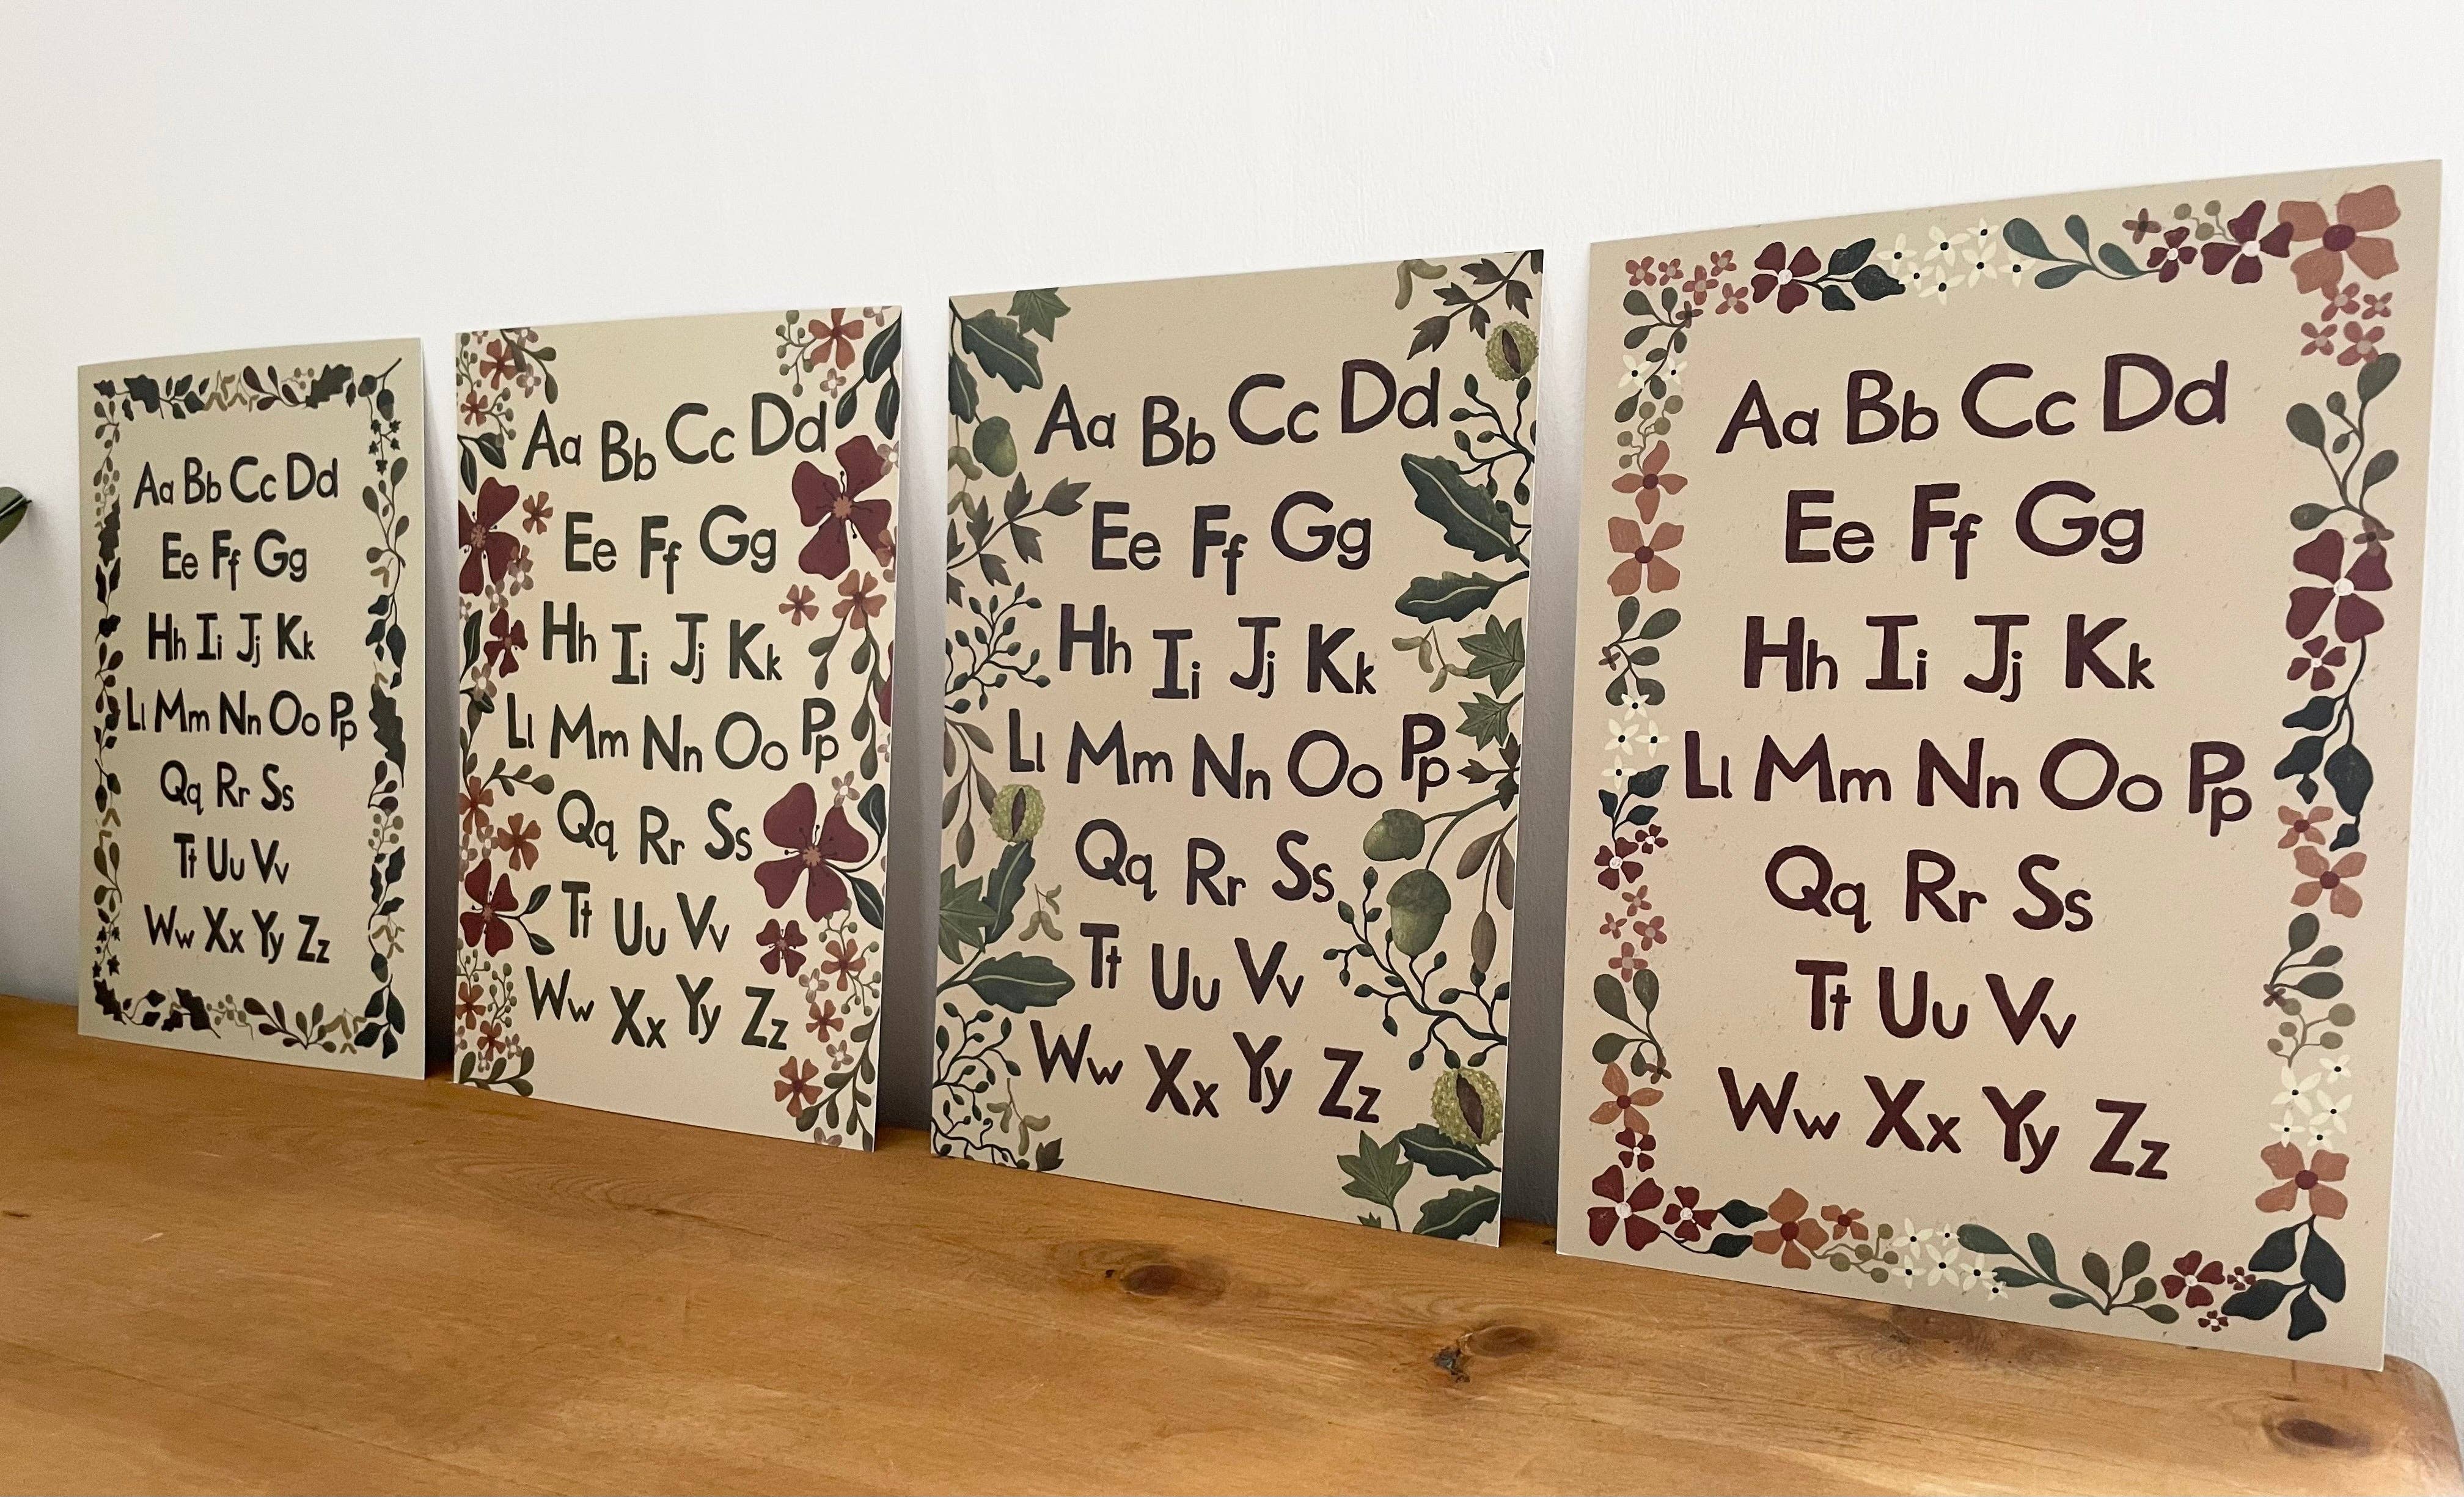 Aa Bb Cc Dd
Ee Ff Gg
Hh Ii Jj Kk
Ll Mm Nn Oo Pp
Qq Rr Ss
Tt Uu Vv
Ww Xx Yy Zz
Aa Bb Cc Dd
Ee Ff Gg
Hh Ii Jj Kk
Ll Mm Nn Oo Pp
Qq Rr Ss
Tt Uu Vv
Ww Xx Yy Zz
Aa Bb Cc Dd
Ee Ff Gg
Hh Ii Jj Kk
Ll Mm Nn Oo Pp
Qq Rr Ss
Tt Uu Vv
Ww Xx Yy Zz
Aa Bb Cc Dd
Ee Ff Gg
Hh Ii Jj Kk
Ll Mm Nn Oo Pp
Qq Rr Ss
Tt Uu Vv
Ww Xx Yy Zz